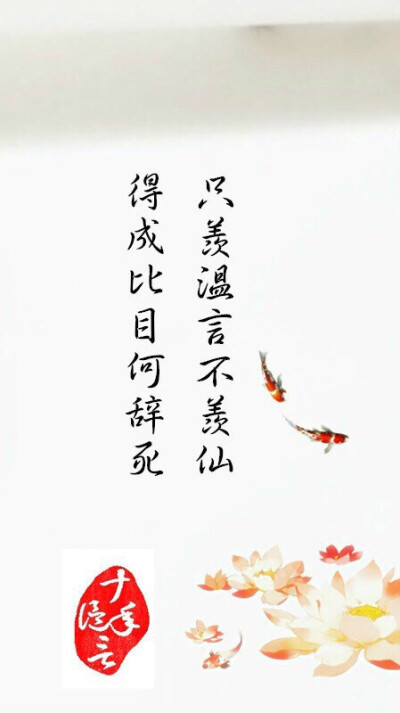 只羡温言不羡仙
得成比目何辞死
十年
温言